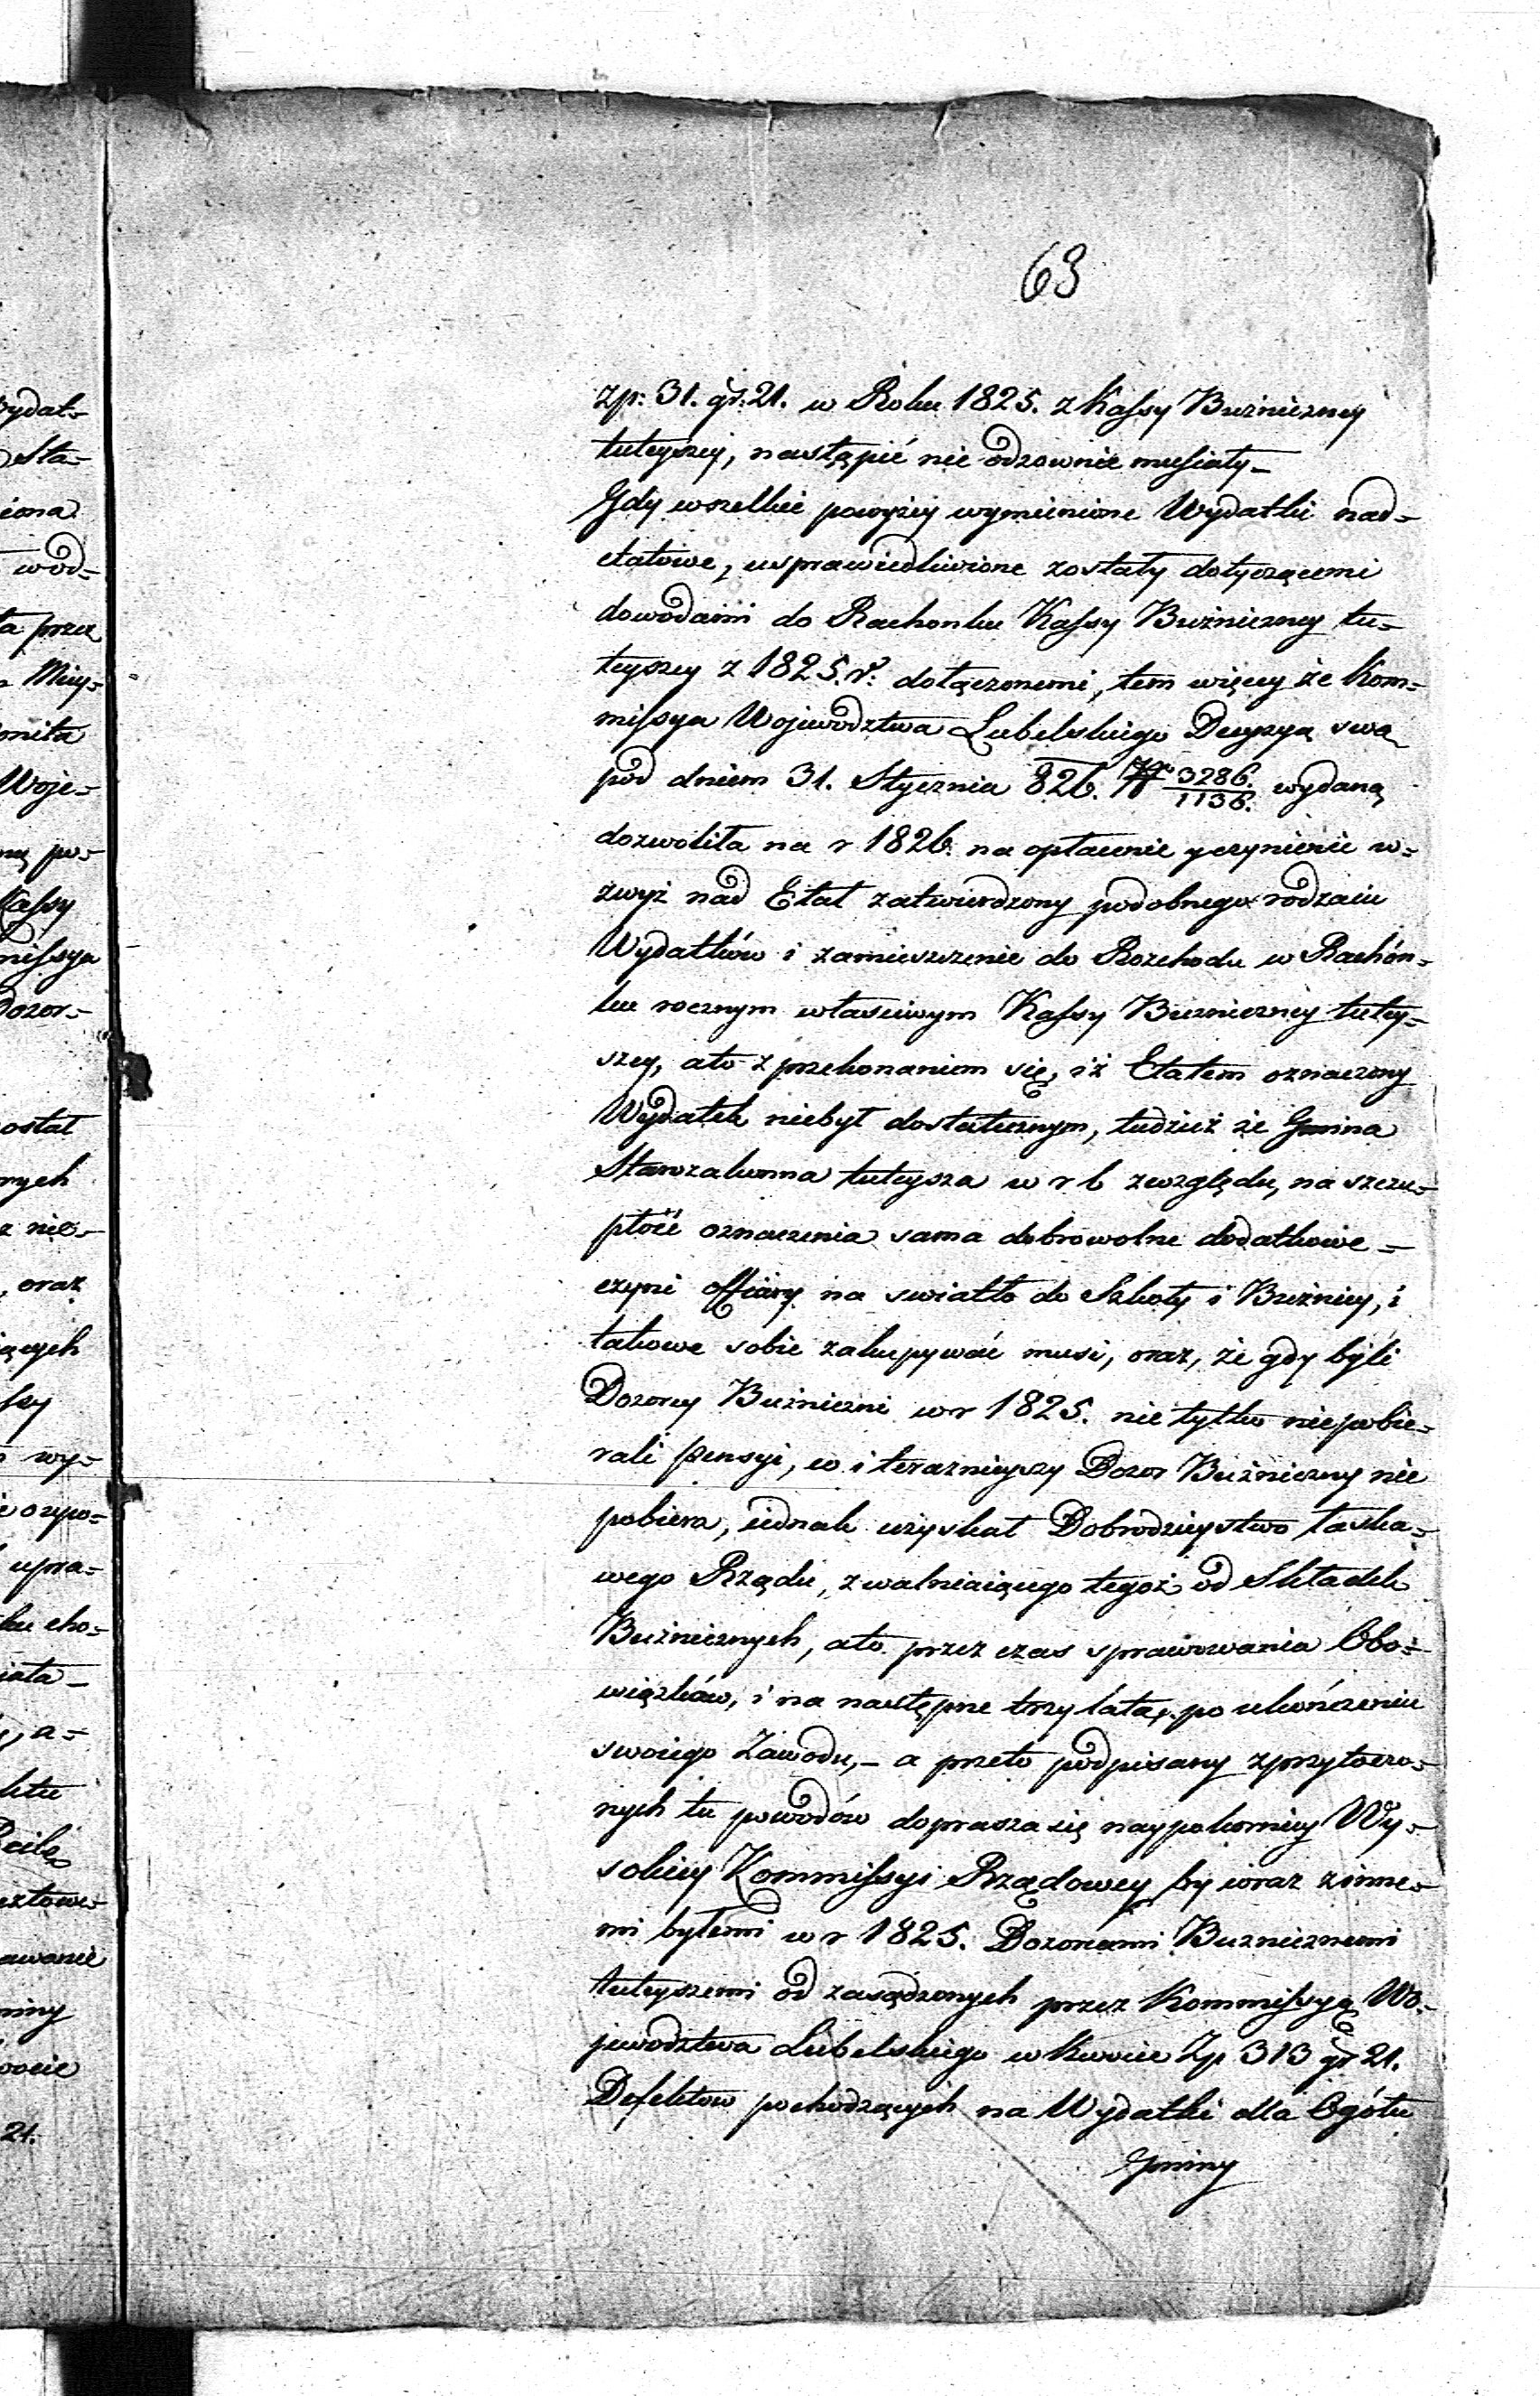 63
Zp: 31. gr. 21. w Roku 1825. z Kassy Buzniczney
tuteyszey, nastąpić nie odzownie musiały_
Gdy wszelkie powyżey wymienione Wydatki nad=
etatowe, usprawiedliwione zostały dotyczącemi
dowodami do Rachonku Kassy Buźniczney tu=
teyszey z 1825. r. dołączonemi, tem więcey że Kom=
missya Wojewodztwa Lubelskiego Decyzyą swą
pod dniem 31. Stycznia 826. No 3286./1136. wydaną
dozwoliła na r 1826. na opłacenie y czynienie w=
zwyż nad Etat zatwierdzony podobnego rodzaiu
Wydatków i zamieszczenie do Rozchodu w Rachón=
ku rocznym własciwym Kassy Buzniczney tutey=
szey, ato z przekonaniem się, iż Etatem oznaczony
Wydatek niebył dostatecznym, tudzież że Gmina
Starozakonna tuteysza w r b zwzględu, na szczu=
płość oznaczenia sama dobrowolne dodatkowe =
czyni offiary na swiatło do Szkoły i Buźnicy, i
takowe sobie zakupywać musi, oraz, że gdy byli
Dozorcy Buźniczni w r 1825. nie tylko niepobie=
rali pensyi, co i teraznieyszy Dozor Buźniczny nie
pobiera, iednak uzyskał Dobrodzieystwo łaska=
wego Rządu, zwalniaiącego tegoż od Składek
Buźnicznych, ato przez czas sprawowania Obo=
wiązków, i na następne trzy lata, po ukończeniu
swoiego Zawodu,_ a przeto podpisany zprzytoczo=
nych tu powodów doprasza się naypokorniey Wy=
sokiey Kommissyi Rządowey by wraz zinne=
mi byłemi w r 1825. Dozorcami Buznicznemi
tuteyszemi od zasądzonych przez Kommissyą Wo=
jewodztwa Lubelskiego w kwocie Zp 313 gr 21.
Defektow pochodzących na Wydatki dla Ogółu
Gminy
ydat=
Sta=
iona
wod=
ta przez
Miey=
Woje=
po=
Kassy
missya
Dozor=
ostał
nych
nie=
, oraz
ących
wy=
upra=
ku cho=
, a=
awanie
miny
21.